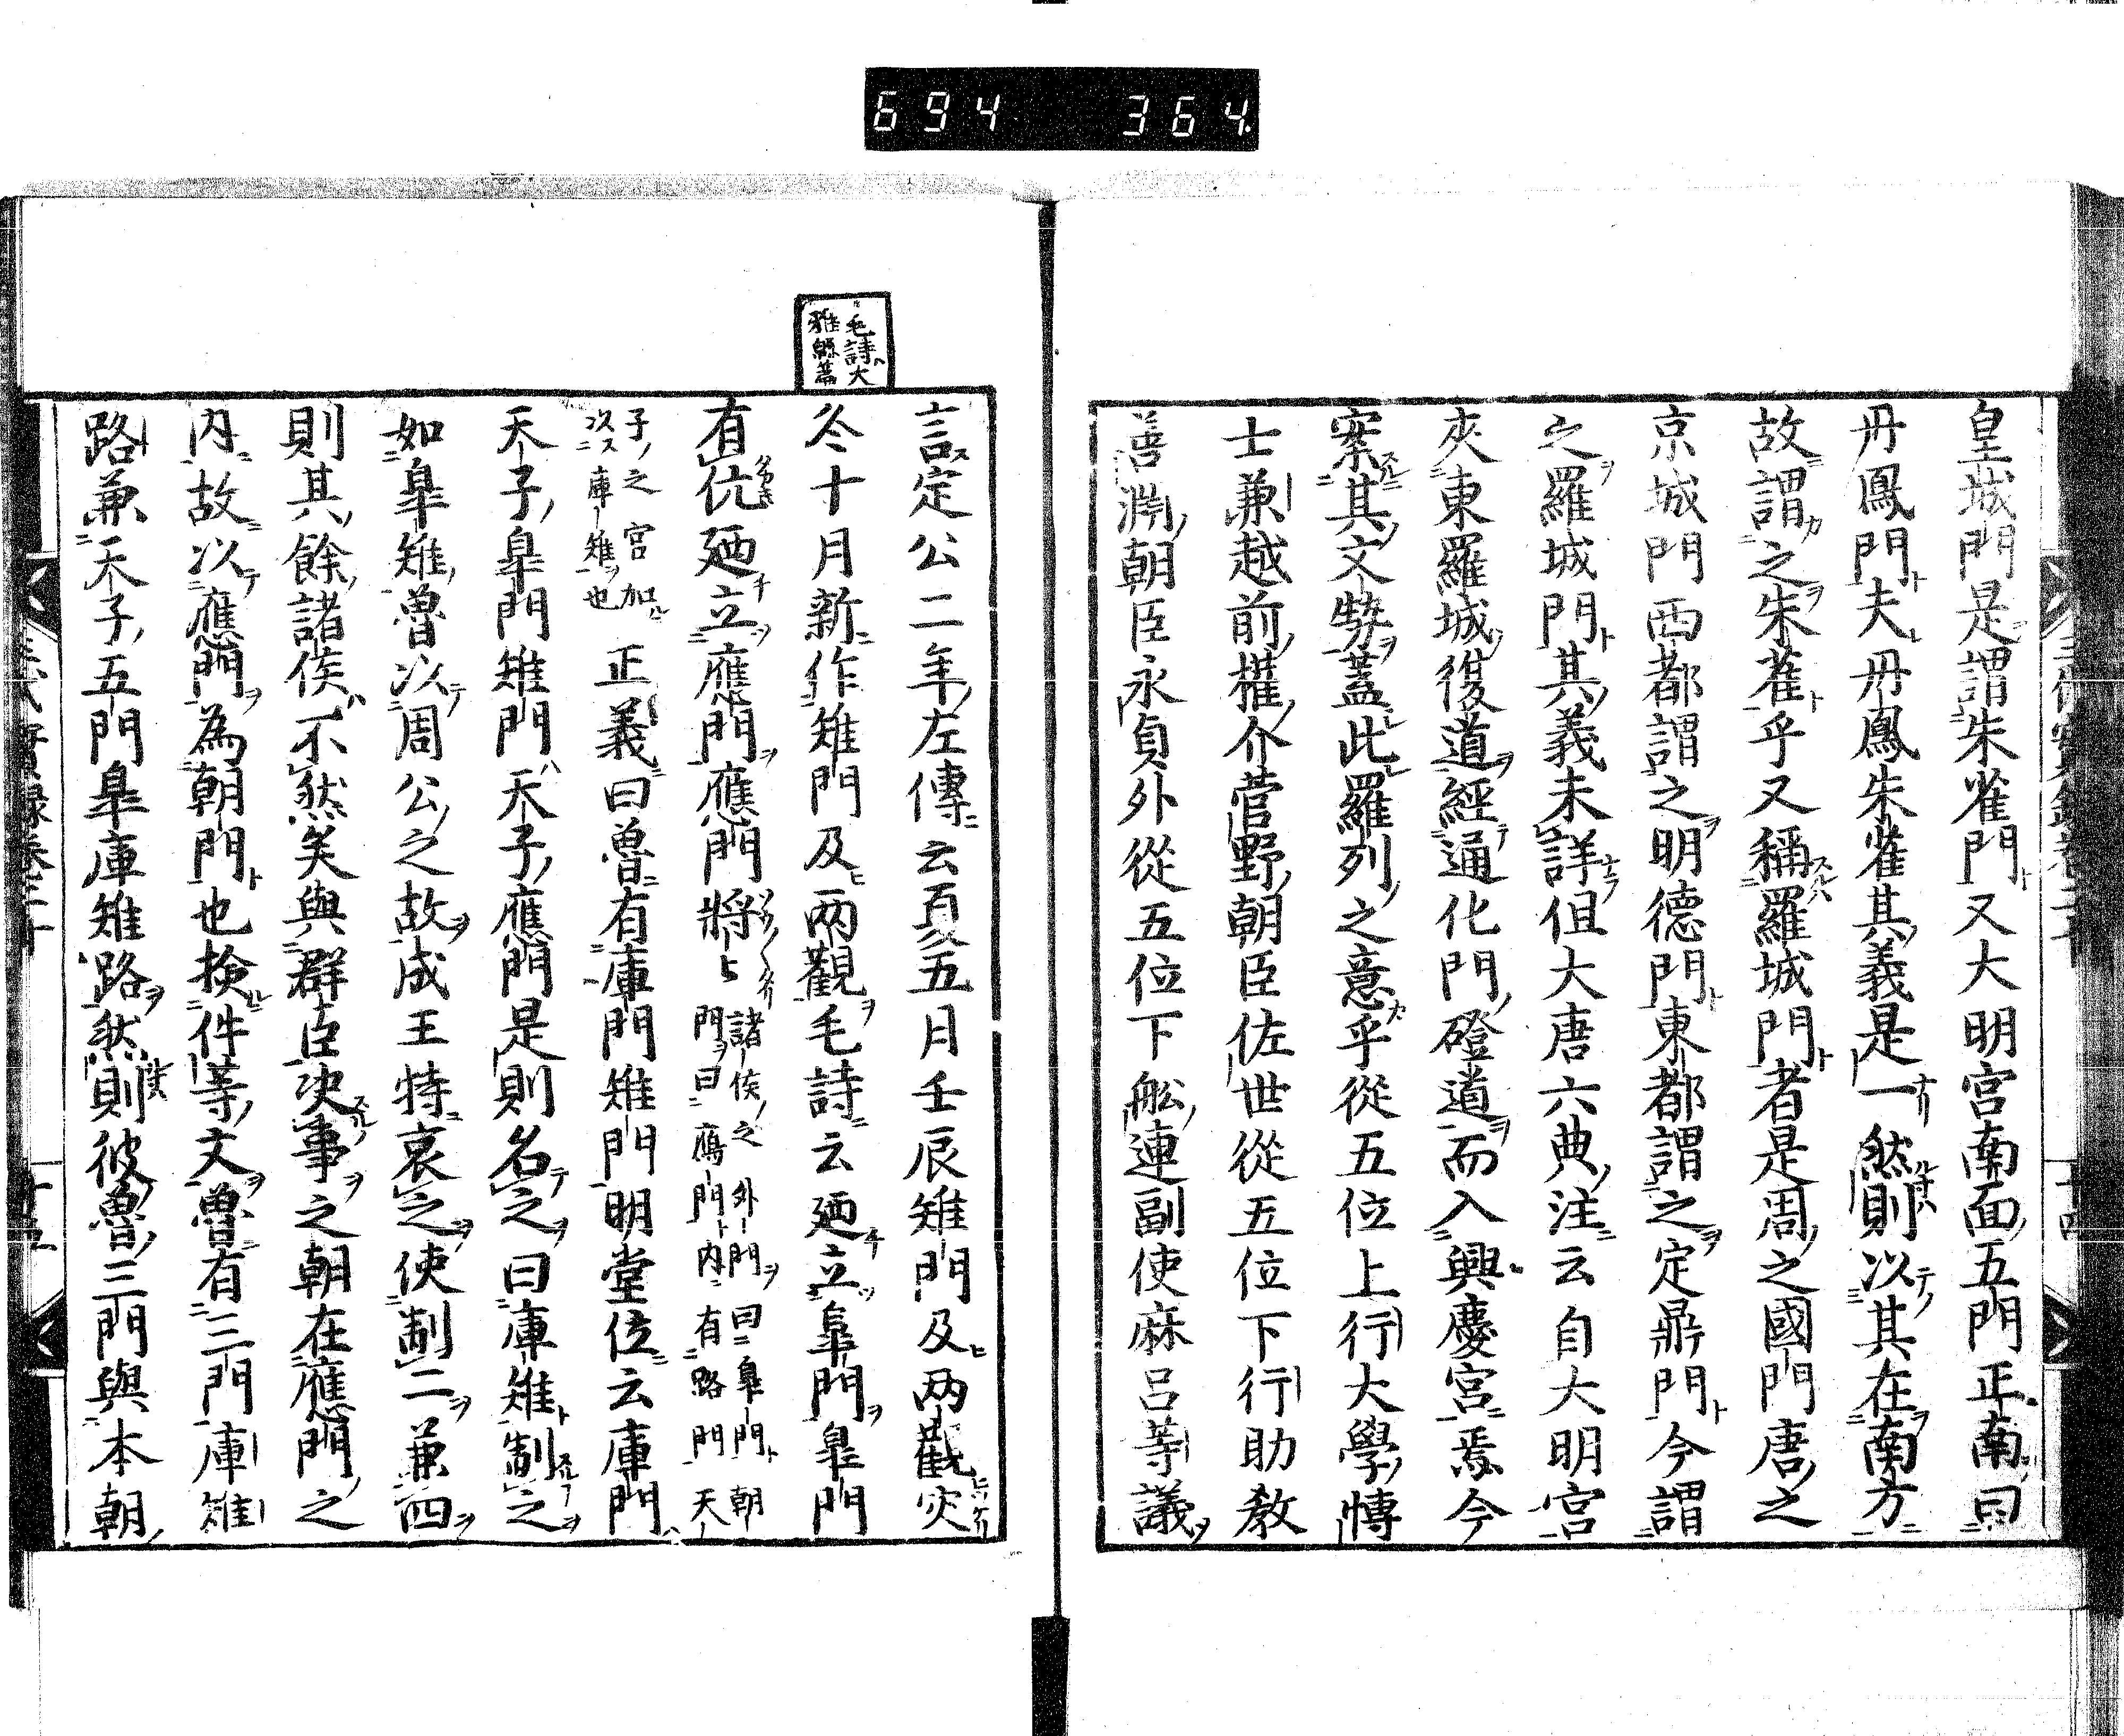 694 364
皇城門是謂朱雀門又大明宮南面五門正南曰
丹鳳門夫丹鳳朱雀其義是一然則以其在南方
故謂之朱雀乎又稱羅城門者是周之國門唐之
京城門西都謂之明德門東都謂之定鼎門今謂
之羅城門其義未詳但大唐六典注云自大明宮
夾東羅城復道經通化門磴道而入興慶宮焉今
案其文勢蓋此羅列之意乎從五位上行大學博
士兼越前權介菅野朝臣佐世從五位下行助教
善淵朝臣永貞外從五位下舩連副使麻呂等議
毛詩大
雅緜篇
言定公二年左傳云夏五月壬辰雉門及兩觀灾
冬十月新作雉門及兩觀毛詩云廼立皐門皐門
有伉廼立應門應門將々諸侯之外門曰皐門朝
門曰應門内有路門天
子之宮加
以庫雉也正義曰魯有庫門雉門明堂位云庫門
天子皐門雉門天子應門是則名之曰庫雉制之
如皐雉魯以周公之故成王特褒之使制二兼四
則其餘諸侯不然矣與群臣决事之朝在應門之
内故以應門為朝門也撿件等文魯有三門庫雉
路兼天子五門皐庫雉路然則彼魯三門與本朝